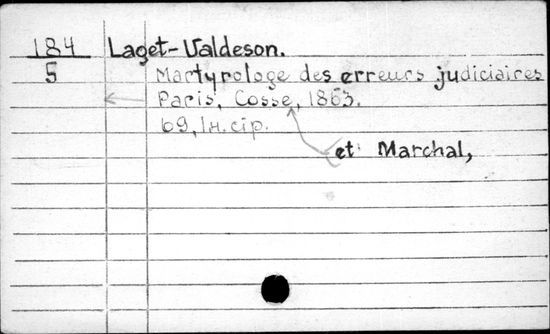 184 Laget-Valdeson.
5 Martyrologe des erreurs judiciaires
Paris, Cosse, 1863.
69, 1H. cip.
et Marchal,